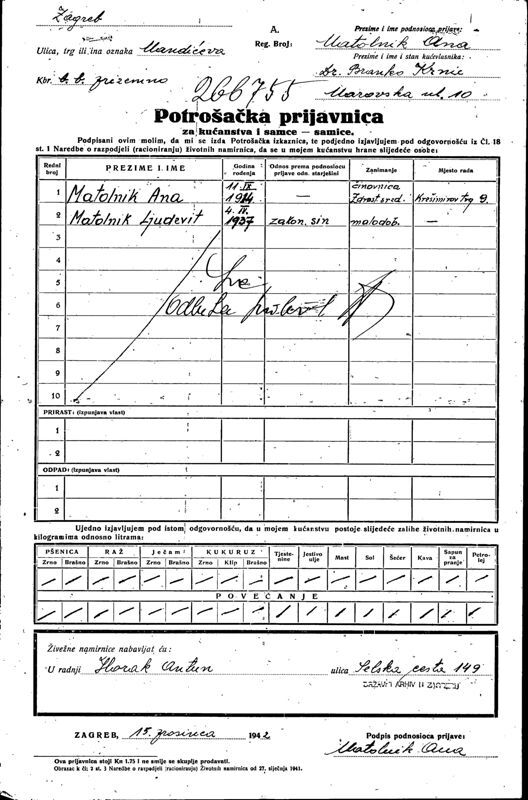 Zagreb
A.
Prezime i ime podnosioca prijave:
Ulica, trg ili ina oznaka Mandićeva
Reg. Broj:
Matolnik Ana
Prezime i ime i stan kućevlasnika:
Kbr. b. b. prizemno
266755
Dr. Branko Krnic
Marovska ul. 10
Potrošačka prijavnica
za kućanstva i samce — samice.
Podpisani ovim molim, da mi se izda Potrošačka izkaznica, te podjedno izjavljujem pod odgovornošću iz Čl. 18
st. 1 Naredbe o razpodjeli (racioniranju) životnih namirnica, da se u mojem kućanstvu hrane slijedeće osobe:
Redni broj
PREZIME I IME
Godina rođenja
Odnos prema podnosiocu prijave odn. starješini
Zanimanje
Mjesto rada
1 Matolnik Ana 11. IX. 1914 — činovnica Zdrast.sred. Krešimirov trg 9.
2 Matolnik Ljudevit 4. IV. 1937 zakon. sin malodob. —
3
4
5
6
7
8
9
10
PRIRAST: (izpunjava vlast)
1
2
ODPAD: (izpunjava vlast)
1
2
Ujedno izjavljujem pod istom odgovornošću, da u mojem kućanstvu postoje slijedeće zalihe životnih namirnica u
kilogramima odnosno litrama:
PŠENICA RAŽ Ječam KUKURUZ Tjestenine Jestivo ulje Mast Sol Šećer Kava Sapun za pranje Petrolej
Zrno Brašno Zrno Brašno Zrno Brašno Zrno Klip Brašno
POVEĆANJE
Živežne namirnice nabavljat ću:
U radnji Horak Antun ulica Selska cesta 149
DRŽAVNI ARHIV U ZAGREBU
ZAGREB, 15. prosinca 1942
Podpis podnosioca prijave:
Matolnik Ana
Ova prijavnica stoji Kn 1.75 i ne smije se skuplje prodavati.
Obrazac k čl. 2 st. 3 Naredbe o razpodjeli (racioniranju) Životnih namirnica od 27. siječnja 1941.